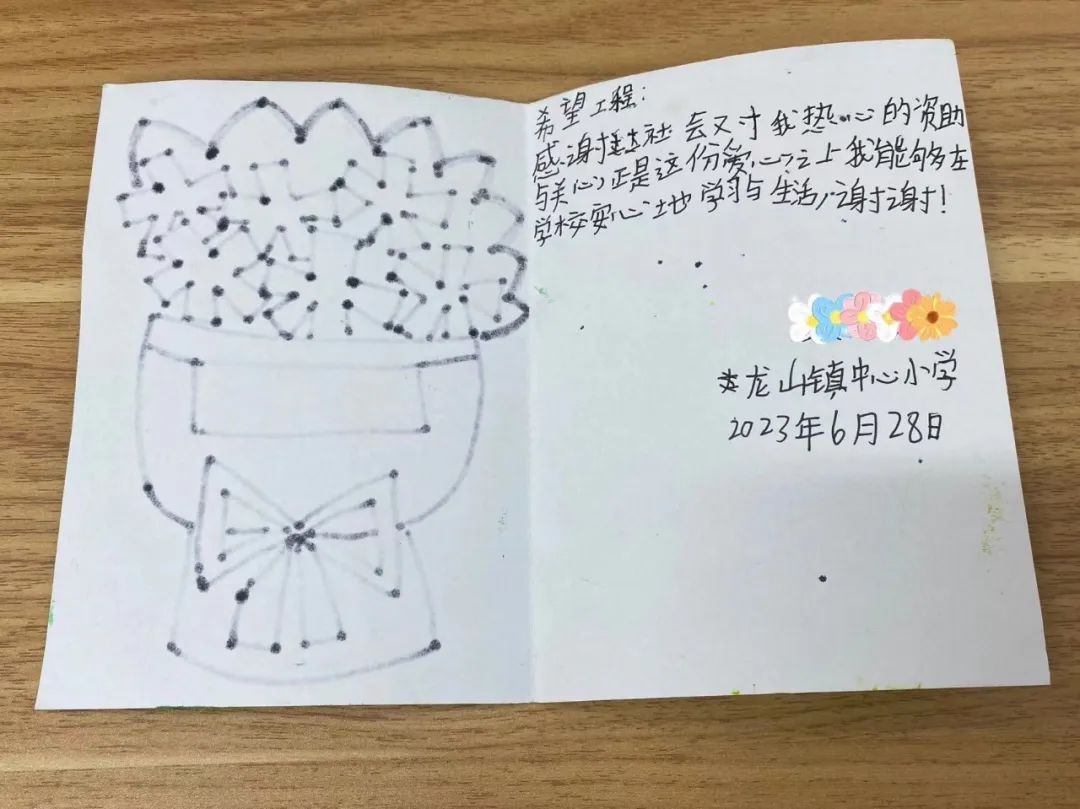 希望工程：
感谢社会对我热心的资助
与关心,正是这份爱心,让我能够在
学校安心地学习与生活,谢谢!
龙山镇中心小学
2023年6月28日